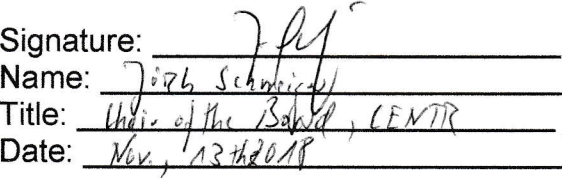 Signature:
Name: Jörg Schweiger
Title: Chair of the Board, CENTR
Date: Nov., 13th 2018